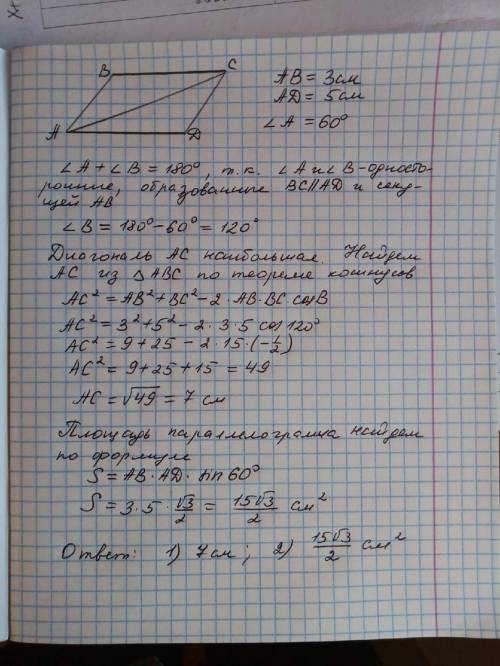 B
C
AB = 3см
AD = 5см
A
D
∠A = 60°
∠A + ∠B = 180°, т.к. ∠A и ∠B - односто-
ронние, образованные BC∥AD и секу-
щей AB
∠B = 180° - 60° = 120°
Диагональ AC наибольшая. Найдем
AC из △ABC по теореме косинусов
AC² = AB² + BC² - 2·AB·BC·cosB
AC² = 3² + 5² - 2·3·5 cos120°
AC² = 9 + 25 - 2·15·(-1/2)
AC² = 9 + 25 + 15 = 49
AC = √49 = 7 см
Площадь параллелограмма найдем
по формуле
S = AB·AD·sin60°
S = 3·5·√3/2 = 15√3/2 см²
Ответ: 1) 7см; 2) 15√3/2 см²